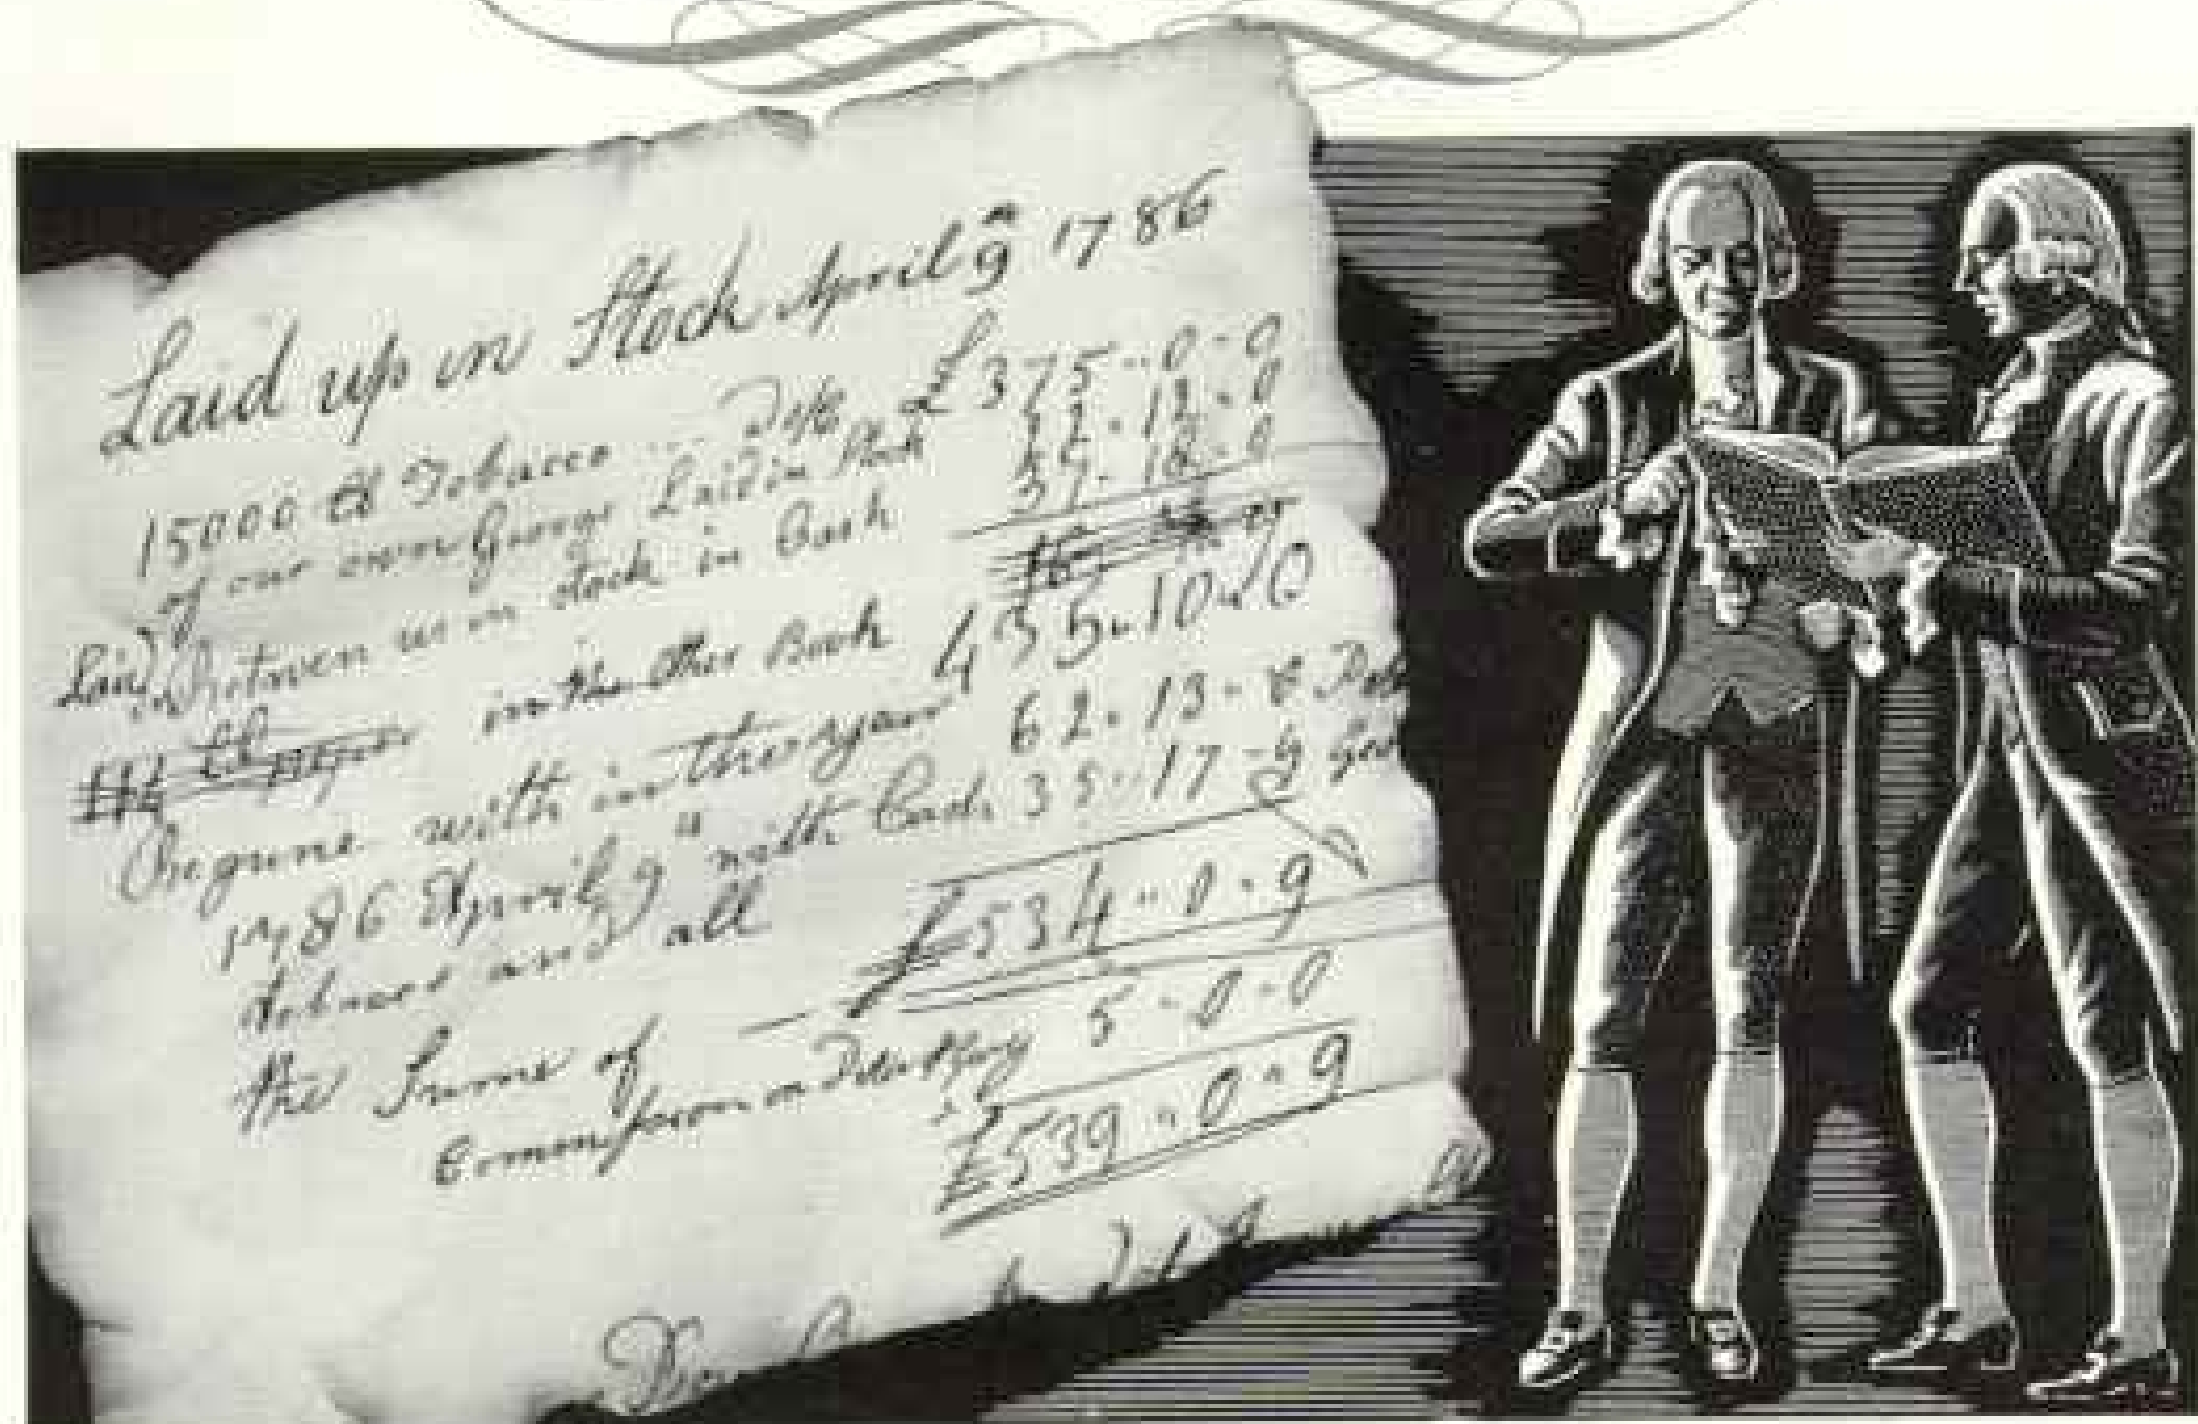 Laid up in Stock April 9th 1786
15000 lb Tobacco £375--0-0
of our own George Laid in Stock 22-12-0
Laid Between us in stock in Cash 37-18-0
in the Other Book 435--10--0
Begune with in the year 62-13-8
1786 April 9th with Cash 35--17-4 Geo
debures and all
the Sume of £534--0-9
Commission on 5-0-0
£539--0-9